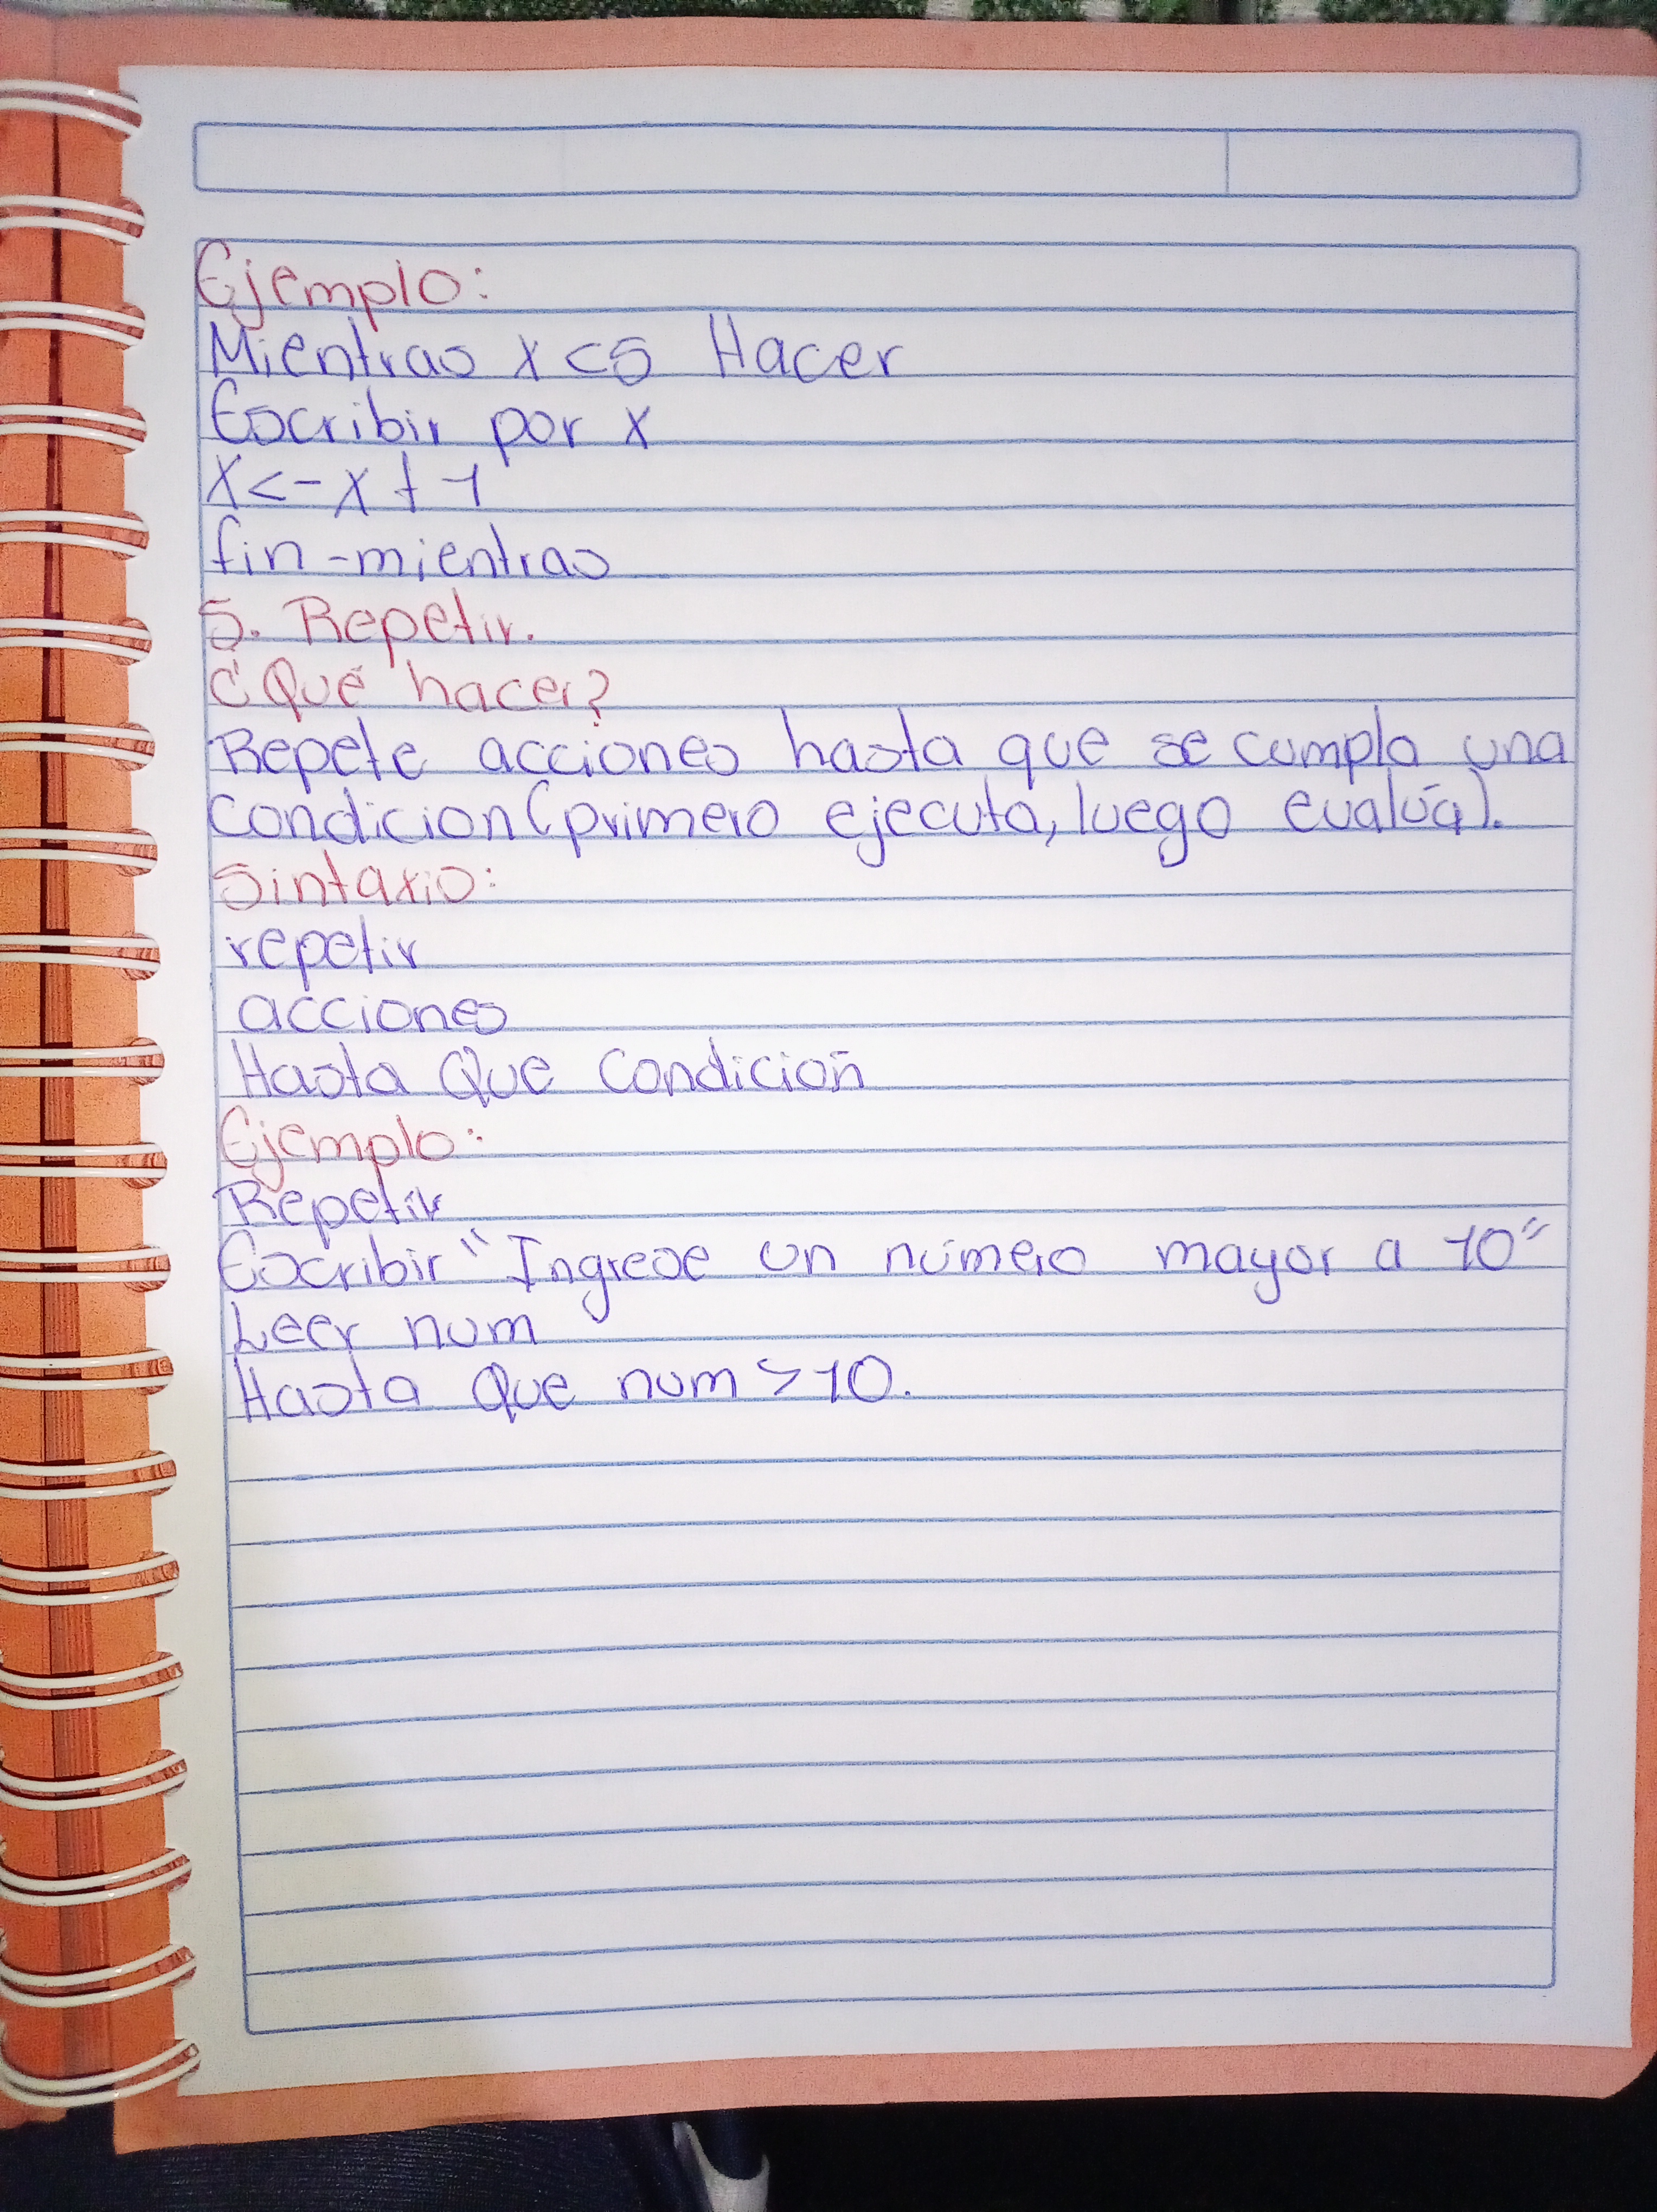 Ejemplo:
Mientras x<5 Hacer
Escribir por x
x<-x+1
fin-mientras
5. Repetir.
¿Qué hacer?
Repete acciones hasta que se cumpla una
condicion (primero ejecuta, luego evalúa).
Sintaxis:
repetir
acciones
Hasta Que Condición
Ejemplo:
Repetir
Escribir "Ingrese un número mayor a 10"
Leer num
Hasta Que num >10.